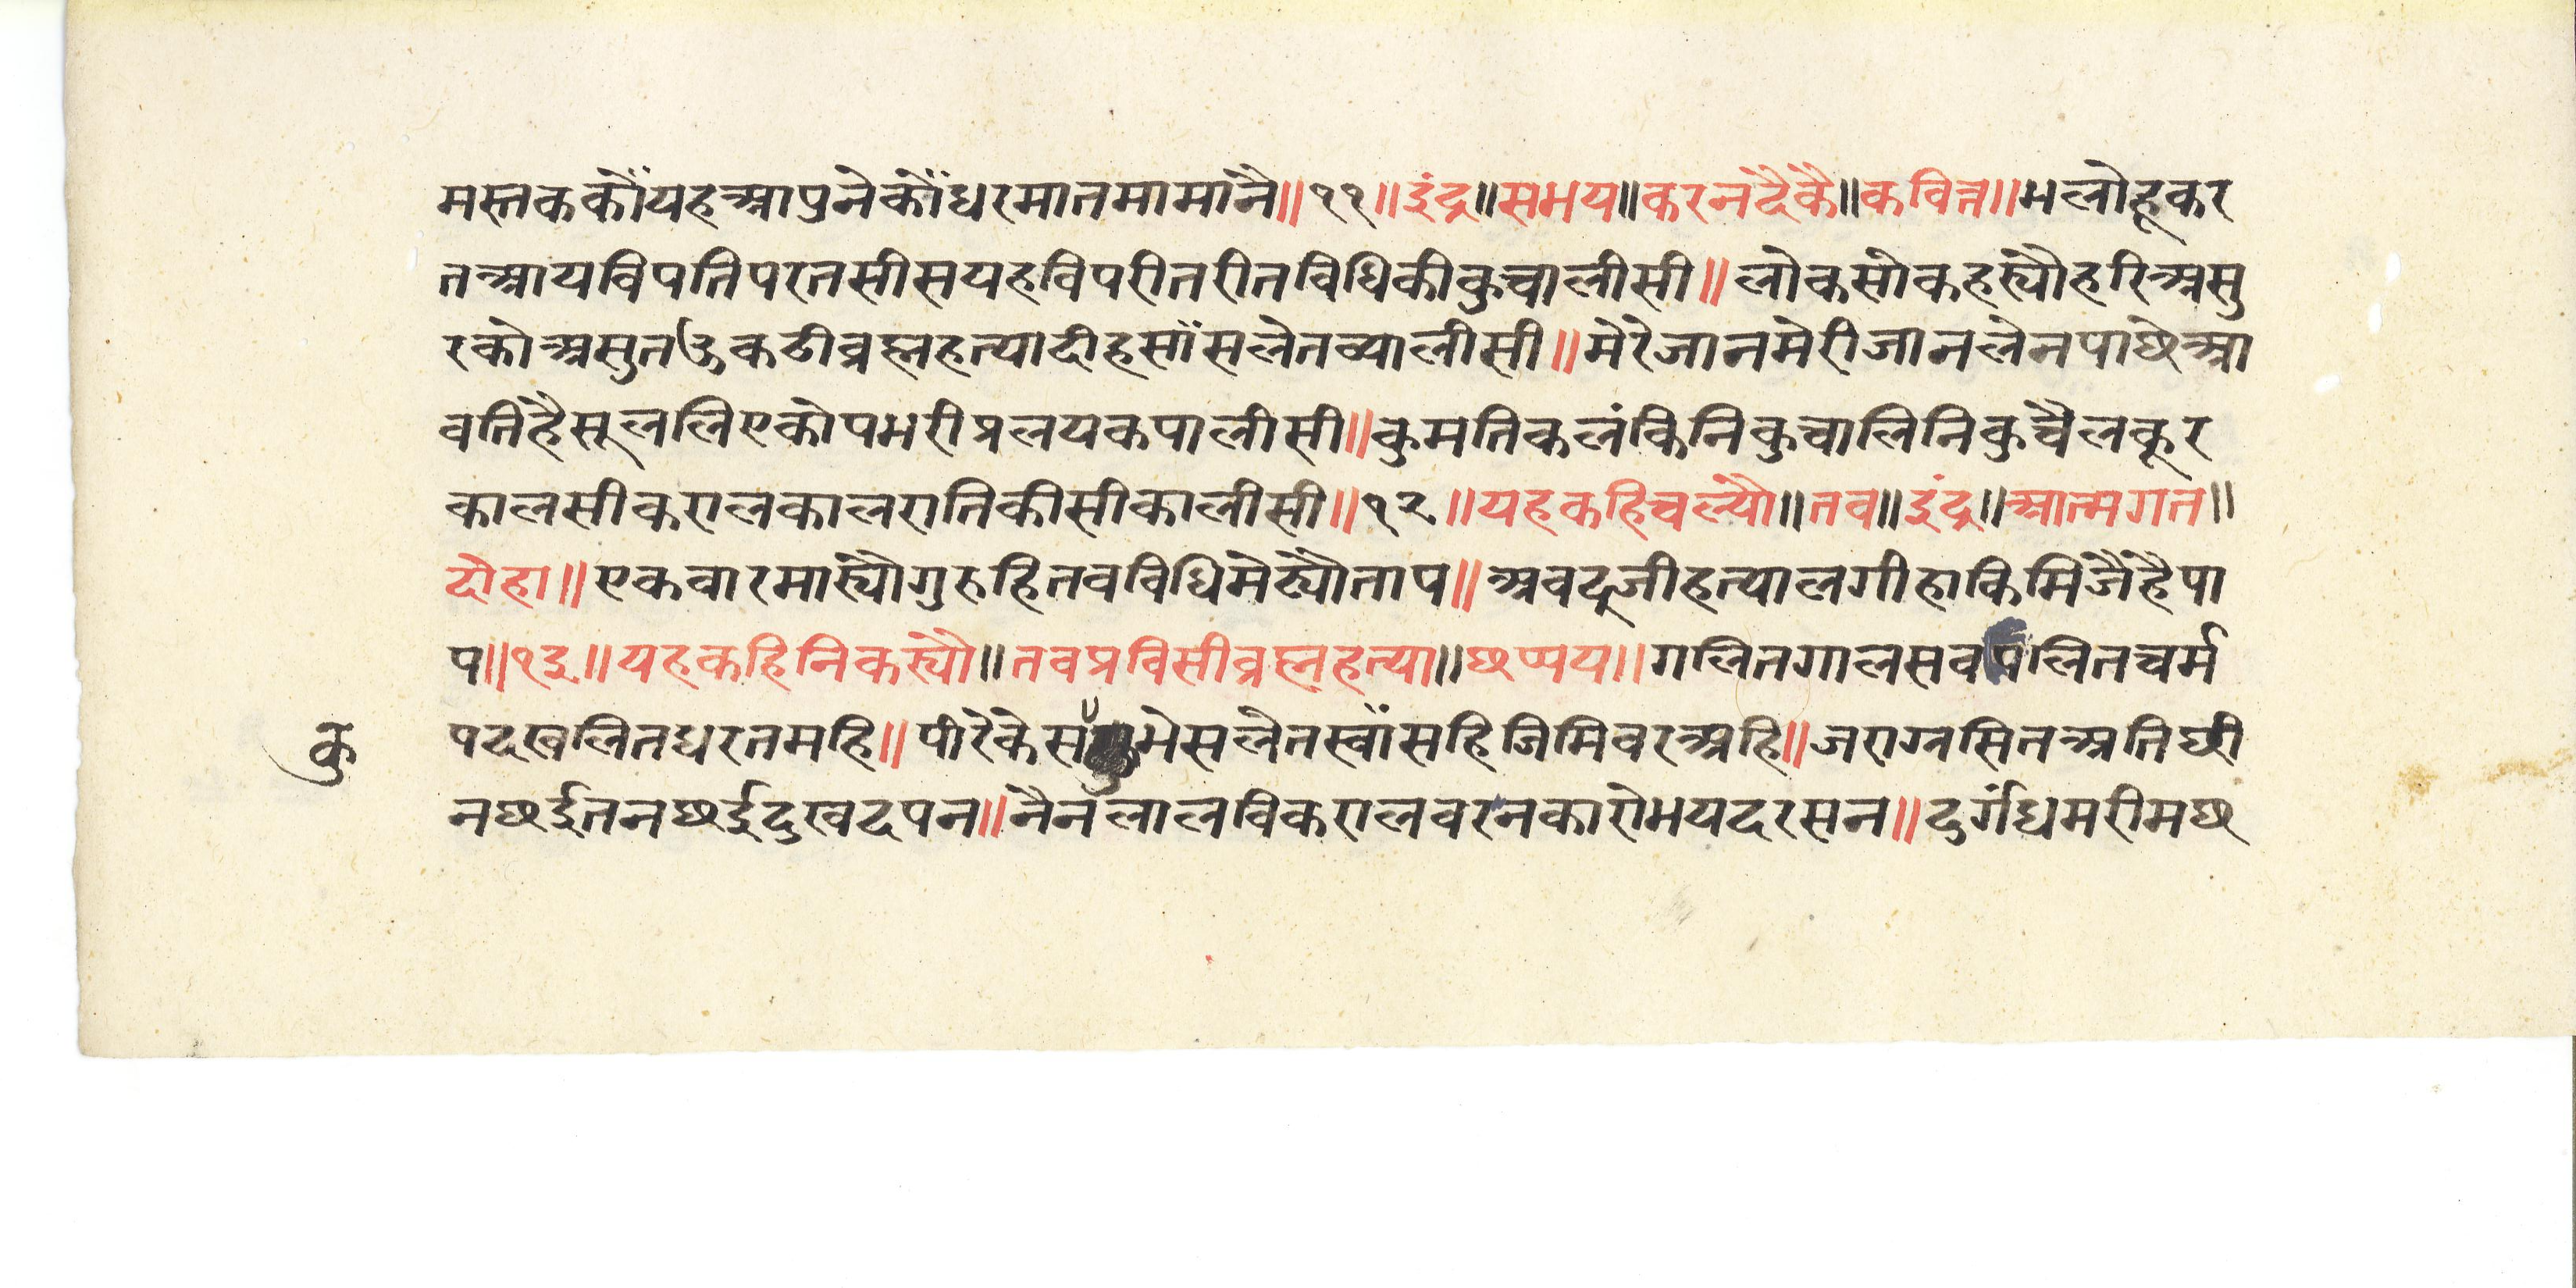 मस्तककौंयहआपुनेकौंधरमातमामांनै॥११॥इंद्र॥समय॥करनदैकै॥कवित्त॥भलोहूकर
तआयविपतिपरतसीसयहविपरीतरीतविधिकीकुचालीसी॥लोकसोकहर्‍यौहरिअसु
रकोअसुतऊकठीब्रह्महत्यादीहसांसलेतव्यालीसी॥मेरेजानमेरीजानलेनपाछेआ
वतिहैसूललिएकोपभरीप्रलयकपालीसी॥कुमतिकलंकिनिकुचालिनिकुचैलकूर
कालसीकरालकालरातिकीसीकालीसी॥१२॥यहकहिचल्यौ॥तब॥इंद्र॥आत्मगत॥
दोहा॥एकबारमार्‍यौगुरुहितबविधिमेट्यौताप॥अबदूजीहत्यालगीहाकिमिजैहैपा
प॥१३॥यहकहिनिकर्‍यौ॥तबप्रविसीब्रह्महत्या॥छप्पय॥गलितगालसबपलितचर्म
पदखलितधरतमहि॥पीरेकेस मेसलेतस्वांसहिजिमिवरअहि॥जराग्रसितअतिछी
कु
नछईतनछईदुखदपन॥नैनलालविकरालवरनकारोभयदरसन॥दुर्गंधभरीमछ